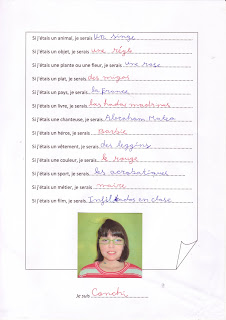 Si j'étais un animal, je serais un singe
Si j'étais un objet, je serais une règle
Si j'étais une plante ou une fleur, je serais une rose
Si j'étais un plat, je serais des migas
Si j'étais un pays, je serais la france
Si j'étais un livre, je serais las hadas madrinas
Si j'étais une chanteuse, je serais Abraham Mateo
Si j'étais un héros, je serais Barbie
Si j'étais un vêtement, je serais des leggins
Si j'étais une couleur, je serais le rouge
Si j'étais un sport, je serais les acrobatiques
Si j'étais un métier, je serais maire
Si j'étais un film, je serais en clase
Je suis Conchi